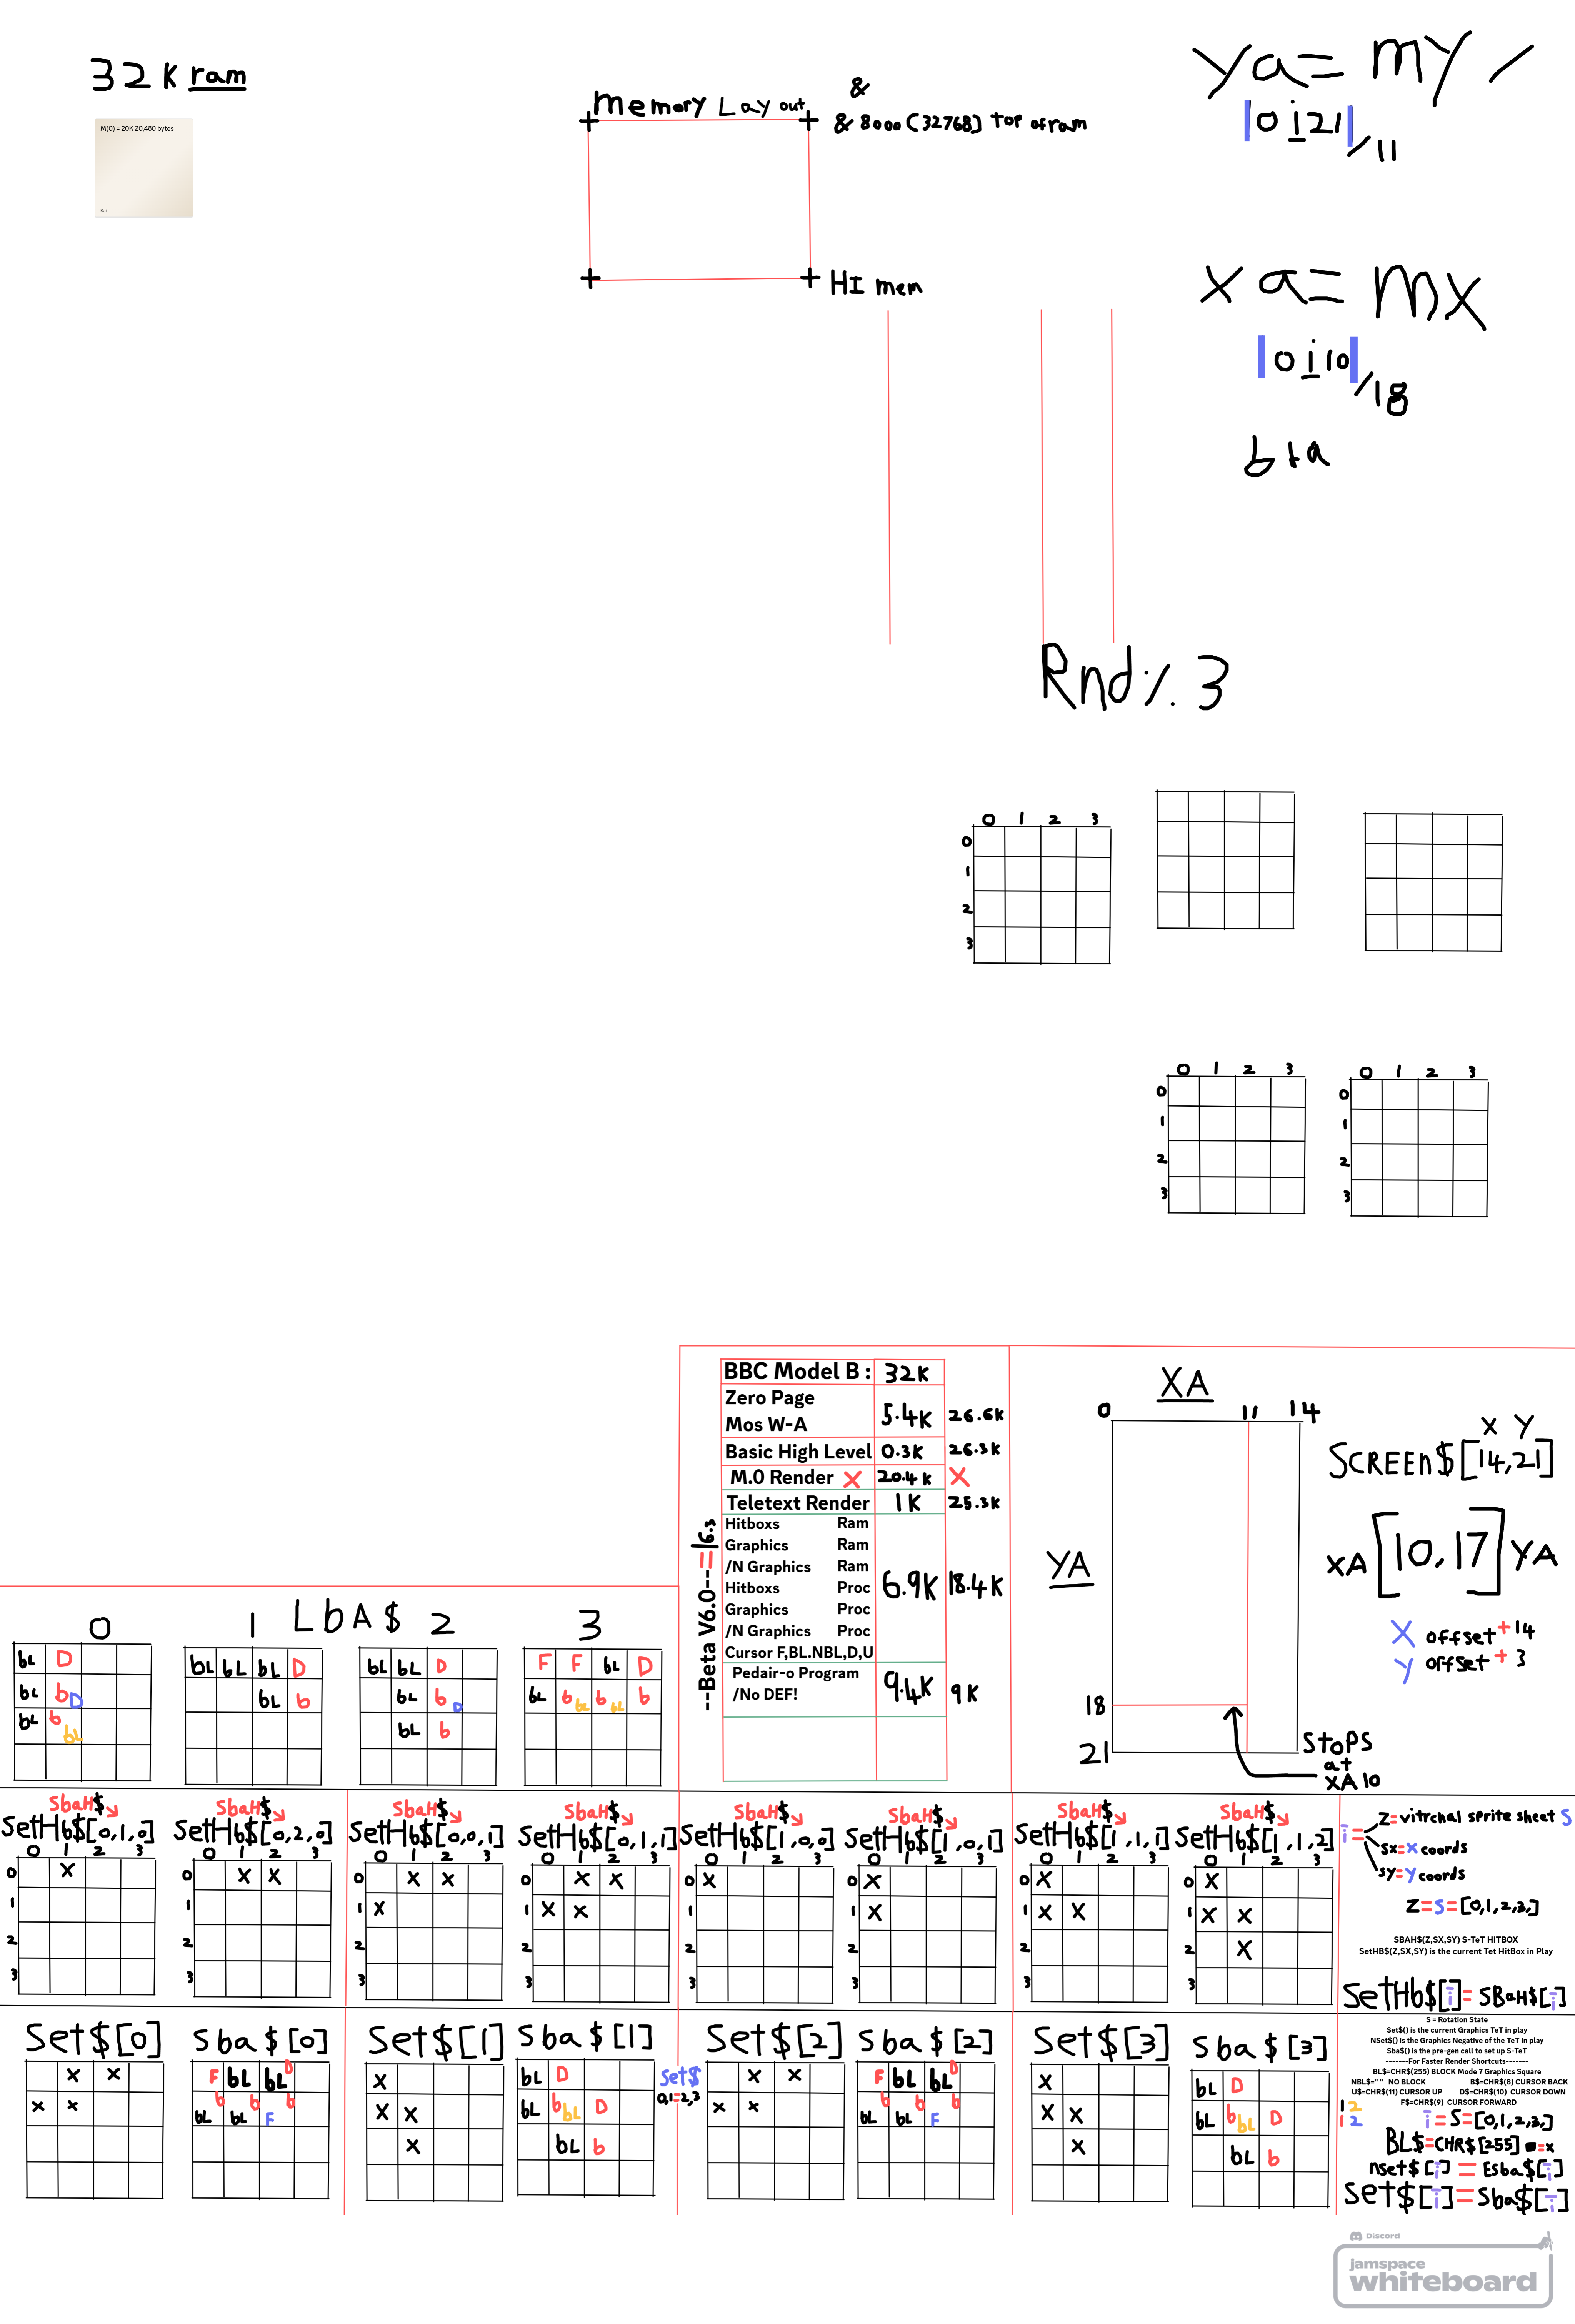 32K ram
M(0) = 20K 20,480 bytes
Kai
Memory Layout
&
& 8000 (32768) top of ram
HI mem
ya= my /
|0 i 21|/11
xa= mx
|0 i 10|/18
b+a
Rnd% 3
0 1 2 3
0
1
2
3
0 1 2 3
0
1
2
3
0 1 2 3
0
1
2
3
--Beta V6.0--=|6.3
BBC Model B: 32K
Zero Page
Mos W-A 5.4K 26.6K
Basic High Level 0.3K 26.3K
M.0 Render X 20.4K X
Teletext Render 1K 25.3K
Hitboxs Ram
Graphics Ram
/N Graphics Ram
Hitboxs Proc
Graphics Proc
/N Graphics Proc
Cursor F,BL.NBL,D,U
6.9K 18.4K
Pedair-o Program
/No DEF!
9.4K 9K
XA
0 11 14
YA
18
21
Stops
at
XA 10
X Y
SCREEN$[14,21]
XA[10,17]YA
X offset +14
Y offset +3
LbA$
0 1 2 3
bL D
bL b D
bL b bL
bL bL bL D
bL b
bL bL D
bL b D
bL b
F F bL D
bL b bL b bL b
SbaH$
SetHb$[0,1,0]
0 1 2 3
0 X
1
2
3
SbaH$
SetHb$[0,2,0]
0 1 2 3
0 X X
1
2
3
SbaH$
SetHb$[0,0,1]
0 1 2 3
0 X X
1 X
2
3
SbaH$
SetHb$[0,1,1]
0 1 2 3
0 X X
1 X X
2
3
SbaH$
SetHb$[1,0,0]
0 1 2 3
0 X
1
2
3
SbaH$
SetHb$[1,0,1]
0 1 2 3
0 X
1 X
2
3
SbaH$
SetHb$[1,1,1]
0 1 2 3
0 X
1 X X
2
3
SbaH$
SetHb$[1,1,2]
0 1 2 3
0 X
1 X X
2 X
3
i=
Z=vitrchal sprite sheet S
Sx=x coords
Sy=y coords
Z=S=[0,1,2,3,]
SBAH$(Z,SX,SY) S-TeT HITBOX
SetHB$(Z,SX,SY) is the current Tet HitBox in Play
SetHb$[i]=SBaH$[i]
Set$[0]
X X
X X
Sba$[0]
F bL bL D
b b b
bL bL F
Set$[1]
X
X X
X
Sba$[1]
bL D
bL b bL D
bL b
Set$
0,1=2,3
Set$[2]
X X
X X
Sba$[2]
F bL bL D
b b b
bL bL F
Set$[3]
X
X X
X
Sba$[3]
bL D
bL b bL D
bL b
S = Rotation State
Set$() is the current Graphics TeT in play
NSet$() is the Graphics Negative of the TeT in play
Sba$() is the pre-gen call to set up S-TeT
-------For Faster Render Shortcuts-------
BL$=CHR$(255) BLOCK Mode 7 Graphics Square
NBL$=" " NO BLOCK B$=CHR$(8) CURSOR BACK
U$=CHR$(11) CURSOR UP D$=CHR$(10) CURSOR DOWN
F$=CHR$(9) CURSOR FORWARD
1 2
1 2
i=S=[0,1,2,3,]
BL$=CHR$[255] ■=x
nset$[i]=Esba$[i]
Set$[i]=Sba$[i]
Discord
jamspace
whiteboard